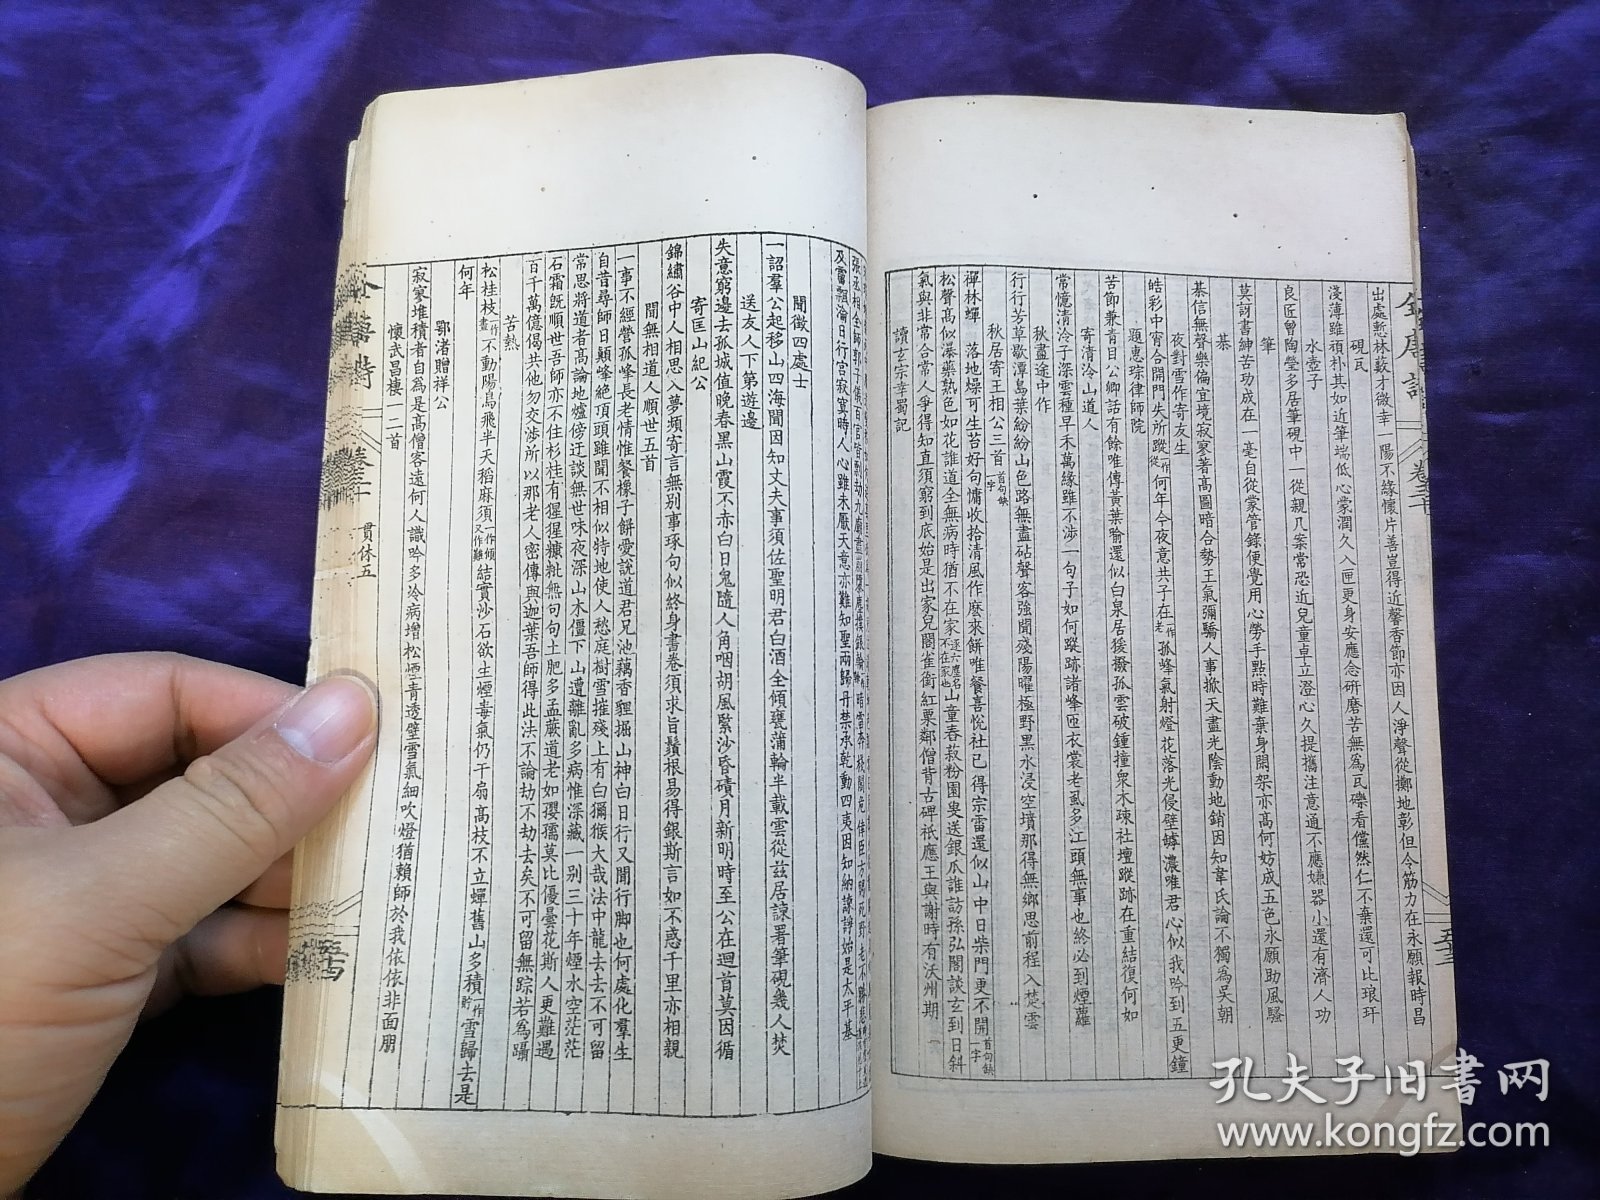 全唐詩
卷三十
出處慙林藪才微幸一陽不緣懷片善豈得近馨香節亦因人淨聲從擲地彰但令筋力在永願報時昌
硯瓦
淺薄雖頑朴其如近筆端低心蒙潤久入匣更身安應念研磨苦無為瓦礫看儻然仁不棄還可比琅玕
水壺子
良匠曾陶瑩多居筆硯中一從親几案常恐近兒童卓立澄心久提攜注意通不應嫌器小還有濟人功
筆
莫訝書紳苦功成在一毫自從蒙管錄便覺用心勞手點時難棄身閑架亦高何妨成五色永願助風騷
棊
棊信無聲樂偏宜境寂寥著高圖暗合勢王氣彌驕人事掀天盡光陰動地銷因知韋氏論不獨為吳朝
夜對雪作寄友生
皓彩中宵合開門失所蹤一作從何年今夜意共子在一作老孤峰氣射燈花落光侵壁罅濃唯君心似我吟到五更鐘
題惠琮律師院
苦節兼青目公卿話有餘唯傳黃葉喻還似白泉居猨撥孤雲破鍾撞衆木疎社壇蹤跡在重結復何如
寄清泠山道人
常憶清泠子深雲種早禾萬緣雖不涉一句子如何蹤跡諸峰匝衣裳老虱多江頭無事也終必到煙蘿
秋盡途中作
行行芳草歇潭島葉紛紛山色路無盡砧聲客強聞殘陽曜極野黑水浸空墳那得無鄉思前程入楚雲
秋居寄王相公三首首句缺一字
禪林蟬 落地燥可生苔好句慵收拾清風作麼來餅唯餐喜悅社已得宗雷還似山中日柴門更不開首句缺一字
松聲高似瀑藥熟色如花誰道全無病時猶不在家逐六塵名不在家也山童舂菽粉園叟送銀瓜誰訪孫弘閣談玄到日斜
氣與非常合常人爭得知直須窮到底始是出家兒閣雀銜紅粟鄰僧背古碑祇應王與謝時有沃州期
讀玄宗幸蜀記
及霤飄淪日行宮寂寞時人心雖未厭天意亦難知聖兩歸丹禁承乾動四夷因知納諫諍始是太平基
聞徵四處士
一詔羣公起移山四海聞因知丈夫事須佐聖明君白酒全傾甕蒲輪半載雲從茲居諫署筆硯幾人焚
送友人下第遊邊
失意窮邊去孤城值晚春黑山霞不赤白日鬼隨人角咽胡風緊沙昏磧月新明時至公在迴首莫因循
寄匡山紀公
錦繡谷中人相思入夢頻寄言無别事琢句似終身書卷須求旨鬚根易得銀斯言如不惑千里亦相親
聞無相道人順世五首
一事不經營孤峰長老情惟餐橡子餅愛說道君兄池藕香貍掘山神白日行又聞行脚也何處化羣生
自昔尋師日顛峰絶頂頭雖聞不相似特地使人愁庭樹雪摧殘上有白獼猴大哉法中龍去去不可留
常思將道者髙論地爐傍迂談無世味夜深山木僵下山遭離亂多病惟深藏一别三十年煙水空茫茫
石霜既順世吾師亦不住杉桂有猩猩糠粃無句句土肥多孟蕨道老如孾孺莫比優曇花斯人更難遇
百千萬億偈共他勿交渉所以那老人密傳與迦葉吾師得此法不論劫不劫去矣不可留無踪若為躡
苦熱
松桂枝一作畫不動陽烏飛半天稻麻須一作傾又作難結實沙石欲生煙毒氣仍干扇高枝不立蟬舊山多積一作貯雪歸去是
何年
鄂渚贈祥公
寂寥堆積者自為是高僧客遠何人識吟多冷病增松煙青透壁雪氣細吹燈猶賴師於我依依非面朋
懷武昌棲一二首
貫休五
孔夫子旧书网
www.kongfz.com